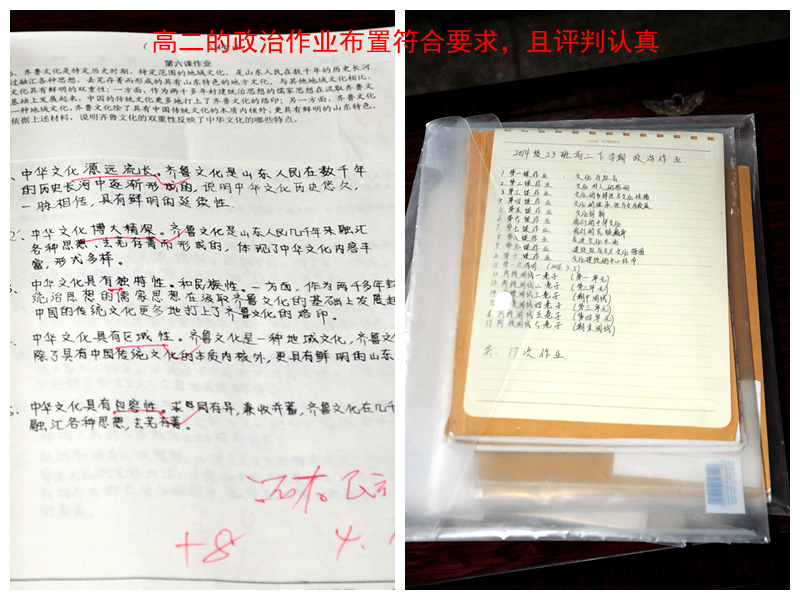 高二的政治作业布置符合要求，且评判认真
第六课作业
齐鲁文化是特定历史时期、特定范围的地域文化，是山东人民在数千年的历史长河
过融汇各种思想、去芜存菁而形成的具有山东特色的地方文化，与其他地域文化相比，
文化具有鲜明的双重性：一方面，作为两千多年封建统治思想的儒家思想在汲取齐鲁文化
基础上发展起来，中国的传统文化更多地打上了齐鲁文化的烙印；另一方面，齐鲁文化
一种地域文化，齐鲁文化除了具有中国传统文化的本质内核外，更具有鲜明的山东特色。
依据上述材料，说明齐鲁文化的双重性反映了中华文化的哪些特点。
中华文化源远流长。齐鲁文化是山东人民在数千年
的历史长河中逐渐形成的，说明中华文化历史悠久，
一脉相传，具有鲜明的延续性.
2、中华文化博大精深。齐鲁文化是山东人民几千年来融汇
各种思想、去芜存菁而形成的，体现了中华文化内容丰
富，形式多样。
中华文化具有独特性。和民族性。一方面，作为两千多年封
统治思想的儒家思想在汲取齐鲁文化的基础上发展起
中国的传统文化更多地打上了齐鲁文化的烙印。
中华文化具有区域性。齐鲁文化是一种地域文化，齐鲁文
除了具有中国传统文化的本质内核外，更具有鲜明的山东
中华文化具有包容性。求同存异，兼收并蓄，齐鲁文化在几千
融汇各种思想，去芜存菁。
+8
2014级23班高二下学期 政治作业
1 第一课作业 文化与社会
2 第二课作业 文化对人的影响
3 第三课作业 文化的多样性与文化传播
4 第四课作业 文化的继承性与文化发展
5 第五课作业 文化创新
6 第六课作业 我们的中华文化
7 第七课作业 我们的民族精神
8 第八课作业
9 第九课作业
第十课作业
(第一单元)
(第二单元)
(期中测试)
(第三单元)
(第四单元)
(期末测试)
共：17次作业